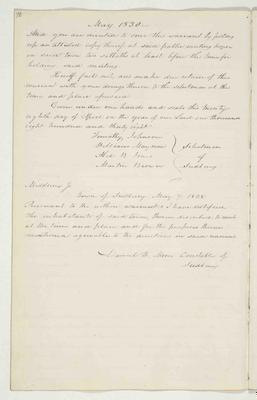 May 1838
And you are directed to serve this warrant by posting
up an attested copy thereof at each public meeting house
in said town two sabbaths at least before the time for
holding said meeting.
Hereof fail not and make due return of this
warrant with your doings thereon to the selectmen at the
time and place aforesaid
Given under our hands and seals this twenty
eighth day of April in the year of our Lord one thousand
eight hundred and thirty eight
Timothy Johnson
William Maynard Selectmen
of
Martin Brown Sudbury
Middlesex ss.
Town of Sudbury May 7 1838
Pursuant to the within warrant I have notified
the inhabitants of said town therein described to meet
at the time and place and for the purposes therein
mentioned agreeable to the directions in said warrant
Constable of
Sudbury